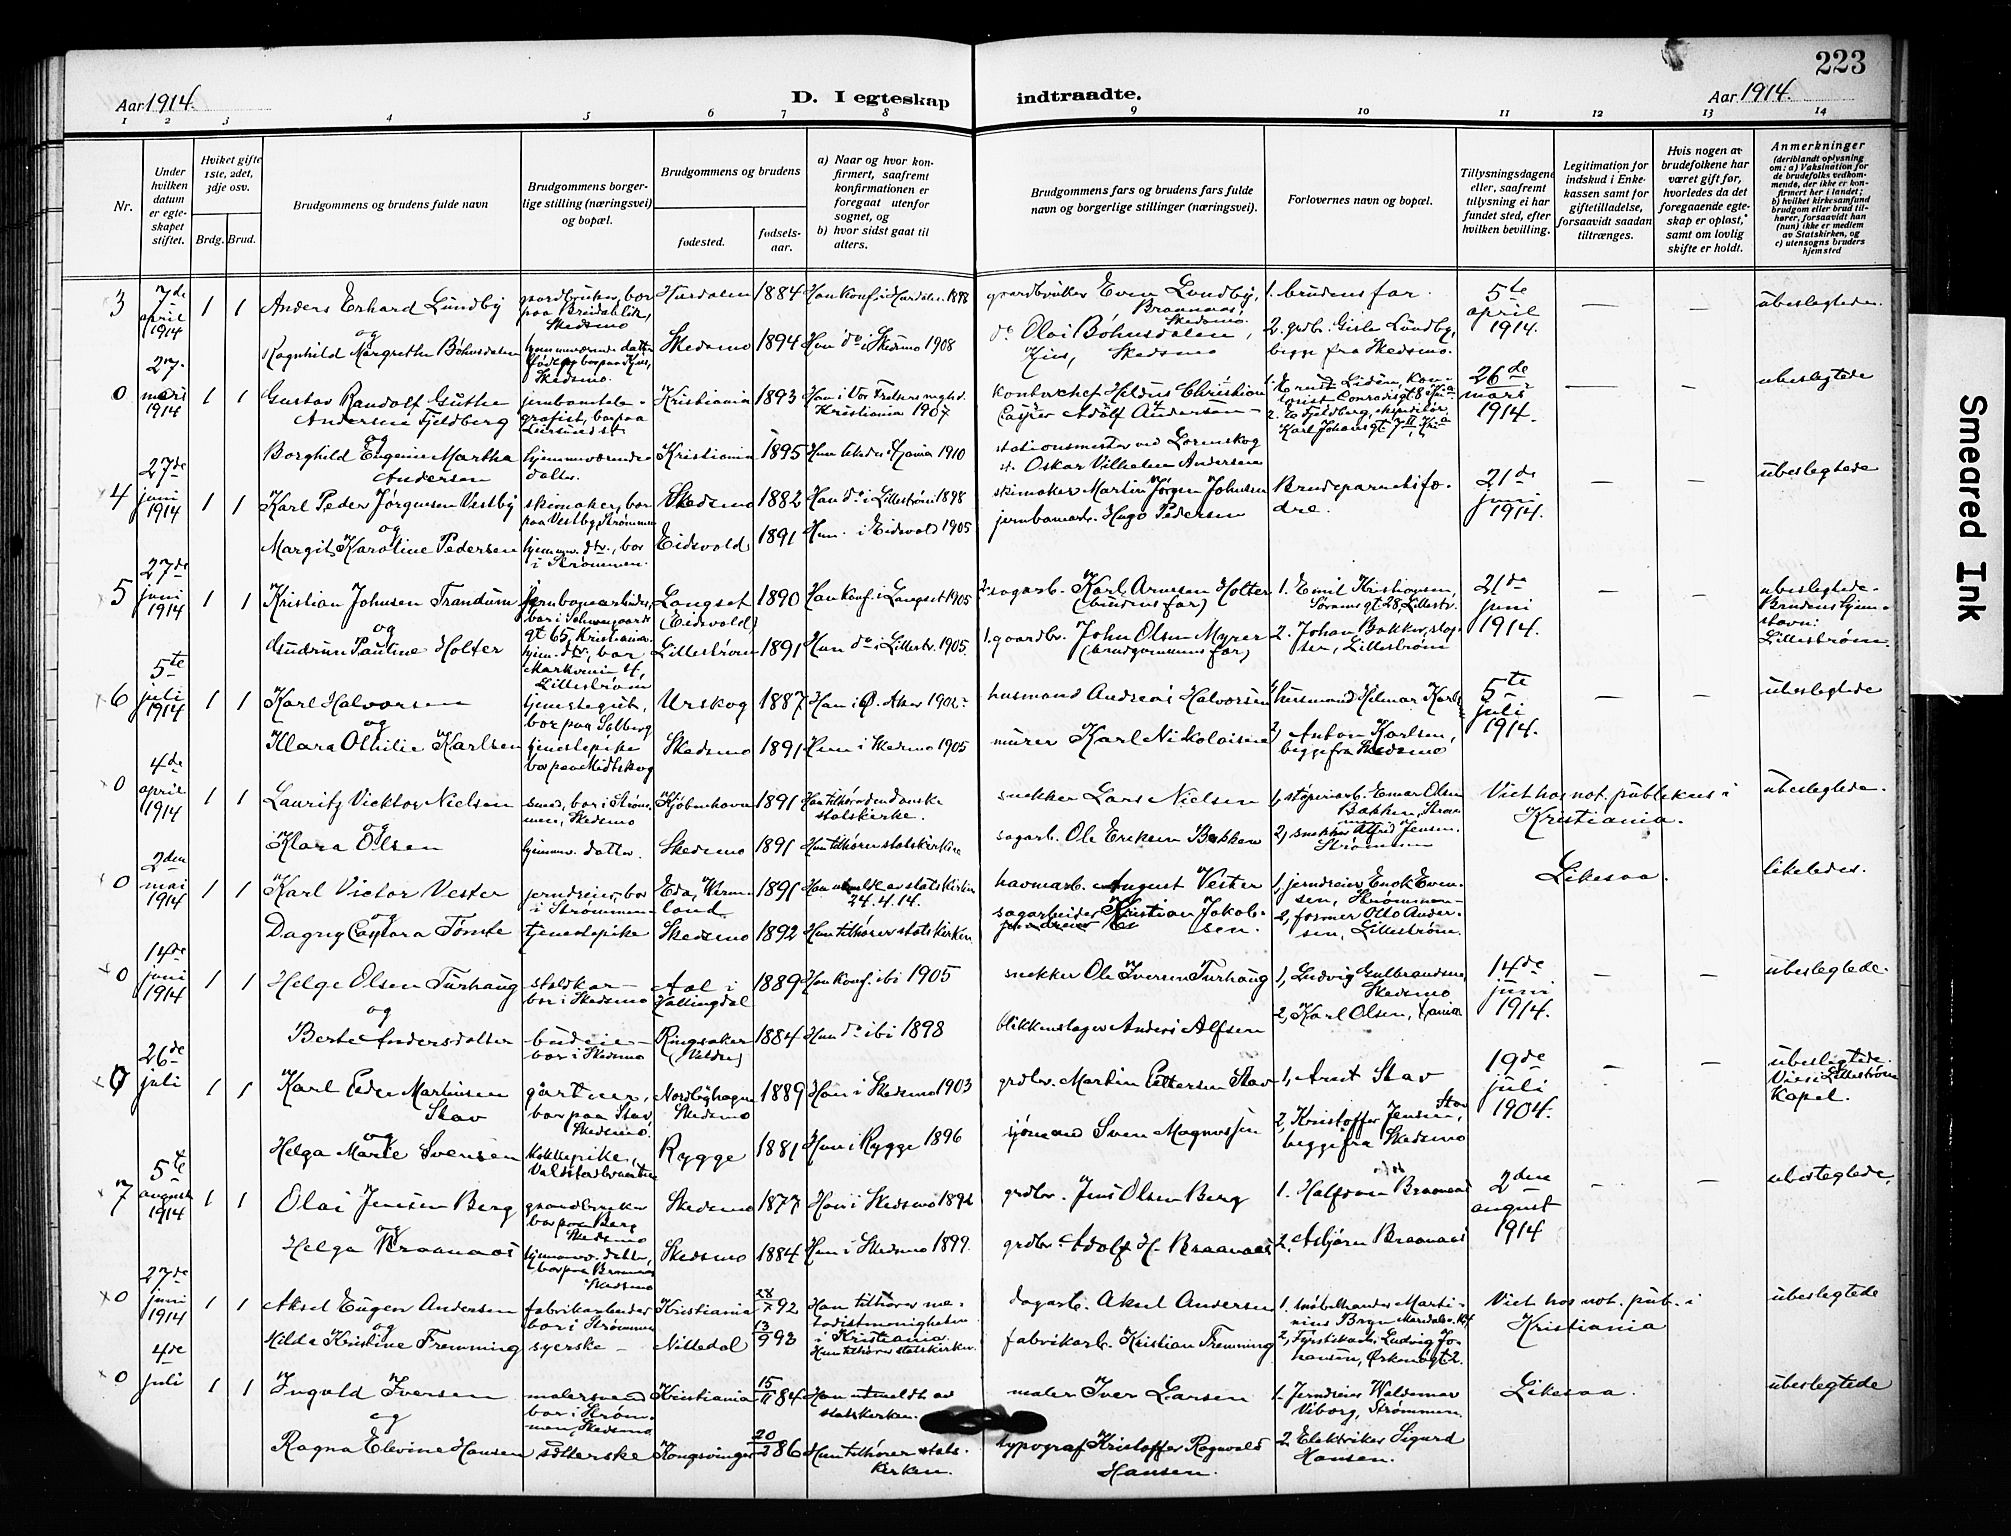 223
Aar 1914.
D. I egteskap indtraadte.
Aar 1914.
1 2 3 4 5 6 7 8 9 10 11 12 13 14
Nr.
Under hvilken datum er egteskapet stiftet.
Hvilket gifte 1ste, 2det, 3dje osv.
Brdg. Brud.
Brudgommens og brudens fulde navn
Brudgommens borgerlige stilling (næringsvei) og bopæl.
Brudgommens og brudens
fødested.
fødselsaar.
a) Naar og hvor konfirmert, saafremt konfirmationen er foregaat utenfor sognet, og
b) hvor sidst gaat til alters.
Brudgommens fars og brudens fars fulde navn og borgerlige stillinger (næringsvei).
Forlovernes navn og bopæl.
Tillysningsdagene eller, saafremt tillysning ei har fundet sted, efter hvilken bevilling.
Legitimation for indskud i Enkekassen samt for giftetilladelse, forsaavidt saadan tiltrænges.
Hvis nogen av brudefolkene har været gift før, hvorledes da det foregaaende egteskap er opløst, samt om lovlig skifte er holdt.
Anmerkninger
(deriblandt oplysning om: a) Vaksination for de brudefolks vedkommende, der ikke er konfirmert her i landet; b) hvilket kirkesamfund brudgom eller brud tilhører, forsaavidt han (hun) ikke er medlem av Statskirken, og c) utensogns bruders hjemsted
3 7de april 1914 1 1 Anders Erhard Lundby gaardbruker, bor paa Breidablik, Skedsmo Hurdalen 1884 Han konf. i Hurdalen 1898 gaardbruker Even Lundby, Braanaas, Skedsmo. 1. brudens far. 5te april 1914. — — ubeslegtede.
og
Ragnhild Margrethe Bøhnsdalen hjemmeværende datter Skedsmo. Skedsmo 1894 Hun do i Skedsmo 1908 do Olai Bøhnsdalen, Skedsmo 2. grdb. Gisle Lundby, begge fra Skedsmo.
0 27. mars 1914 1 1 Gustav Randolf Guthe Andersen Fjeldberg Kristiania 1893 Han i Vor Frelsers mgh. Kristiania 1907 26de mars 1914. — — ubeslegtede
og
Borghild Eugenie Martha Andersen hjemmeværende datter. Kristiania 1895 1910 stationsmester ved Lørenskog st. Oskar Vilhelm Andersen
4 27de juni 1914 1 1 Karl Peder Jørgensen Vestby skimaker, bor paa Vestby, Strømmen Skedsmo 1882 Han do i Lillestrøm 1898 skimaker Martin Jørgen Johnsen Brudeparrets fædre. 21de juni 1914. — — ubeslegtede
og
Margit Karoline Pedersen hjemmev. dtr., bor i Strømmen. Eidsvold 1891 Hun i Eidsvold 1905 jernbanearb. Hugo Pedersen
5 27de juni 1914 1 1 Kristian Johnsen Trandum jernbanearbeider, bor i Schweigaards gt 65, Kristiania. Langset (Eidsvold) 1890 Han konf. i Langset 1905 2. sagarb. Karl Arnesen Holter (brudens far) 1. Emil Kristiansen, Sørumsgt 28, Lillestr. 21de juni 1914. — — ubeslegtede. Brudens hjemstavn: Lillestrøm.
og
Gudrun Pauline Holter hjem. dtr., bor Markveien 4, Lillestrøm Lillestrøm 1891 Hun do i Lillestr. 1905. 1. gaardbr. John Olsen Myrer (brudgommens far) 2. Johan Bakken, Lillestrøm
6 5te juli 1914 1 1 Karl Halvorsen tjenestegut, bor paa Solberg Urskog 1887 Han i Ø. Aker 1902 husmand Andreas Halvorsen 1, husmand Hilmar Karlsen 5te juli 1914. — — ubeslegtede
og
Klara Othilie Karlsen tjenestepike bor paa Midtskog Skedsmo 1891 Hun i Skedsmo 1905 murer Karl Nikolaisen 2, Anton Karlsen, begge fra Skedsmo
0 4de april 1914 1 1 Lauritz Vicktor Nielsen smed, bor i Strømmen, Skedsmo Kjøbenhavn 1891 Han tilhører den danske statskirke. snekker Lars Nielsen 1, støperiarb. Einar Olsen Bakken, Strømmen Viet hos not. publikus i Kristiania. ubeslegtede.
og
Klara Olsen hjemmev. datter. Skedsmo 1891 Hun tilhører statskirken sagarb. Ole Eriksen Bakken 2, snekker Alfred Jensen. Strømmen
0 2den mai 1914 1 1 Karl Victor Vester jerndreier, bor i Strømmen Eda, Wermland 1891 Han utmeldt av statskirken 24.4.14. havnearb. August Vester 1, jerndreier Enok Evensen, Strømmen Likesaa. likeledes.
og
Dagny Tømte tjenestepike Skedsmo 1892 Hun tilhører statskirken. sagarbeider Kristian Jakobsen. 2, former Otto Andersen, Lillestrøm.
0 14de juni 1914 1 1 Helge Olsen Turhaug staldkar bor i Skedsmo Aal i Hallingdal 1889 Han konf. ibi 1905 snekker Ole Iversen Turhaug 1, Ludvig Gulbrandsen, Skedsmo 14de juni 1914. — — ubeslegtede.
og
Berte Andersdatter budeie bor i Skedsmo Ringsaker (Veldre) 1884 Hun do ibi 1898 blikkenslager Anders Alfsen 2, Karl Olsen, Kr.ania
0 26de juli 1 1 Karl Martinsen Stav gartner, bor paa Stav, Skedsmo. Skedsmo 1889 Han i Skedsmo 1903 grdbr. Martin Pettersen Stav 1, Arnt Stav 19de juli 1904. — — ubeslegtede. Viet i Lillestrøm Kapel.
og
Helga Marie Svensen kokkepike, Rygge 1881 Hun i Rygge 1896 sjømand Sven Magnussen 2, Kristoffer Jensen, Stav begge fra Skedsmo
7 5te august 1914 1 1 Olai Jensen Berg gaardbruker bor paa Berg Skedsmo Skedsmo 1877 Han i Skedsmo 1892 grdbr. Jens Olsen Berg 1. Halfdan Braanaas 2den august 1914 — — ubeslegtede.
og
Helga Braanaas hjemmev. datter, bor paa Braanaas Skedsmo Skedsmo 1884 Hun i Skedsmo 1899. grdbr. Adolf H. Braanaas 2. Asbjørn Braanaas
0 27de juni 1914 1 1 Aksel Eugen Andersen fabrikarbeider bor i Strømmen Kristiania 28/7 92 Han tilhører metodistmenigheten i Kristiania. dagarb. Aksel Andersen 1. møbelhandler Martinius Bryn Viet hos not. pub. i Kristiania ubeslegtede
og
Hilda Kristine Fremming syerske Nittedal 13/9 93 Hun tilhører statskirken. fabrikarb. Kristian Fremming 2, Ludvig Johansen, Ørkenøgt 2.
0 4de juli 1 1 Ingvald Iversen malersvend bor i Strømmen, Skedsmo Kristiania 15/11 84 Han utmeldt av statskirken. maler Iver Larsen 1. Jerndreier Waldemar Viborg, Strømmen. Likesaa. ubeslegtede
og
Ragna Elevine Hansen sætterske Kongsvinger 86 Hun tilhører statskirken. typograf Kristoffer Ragnvald Hansen. 2. Elektriker Sigurd Hansen.
Smeared Ink